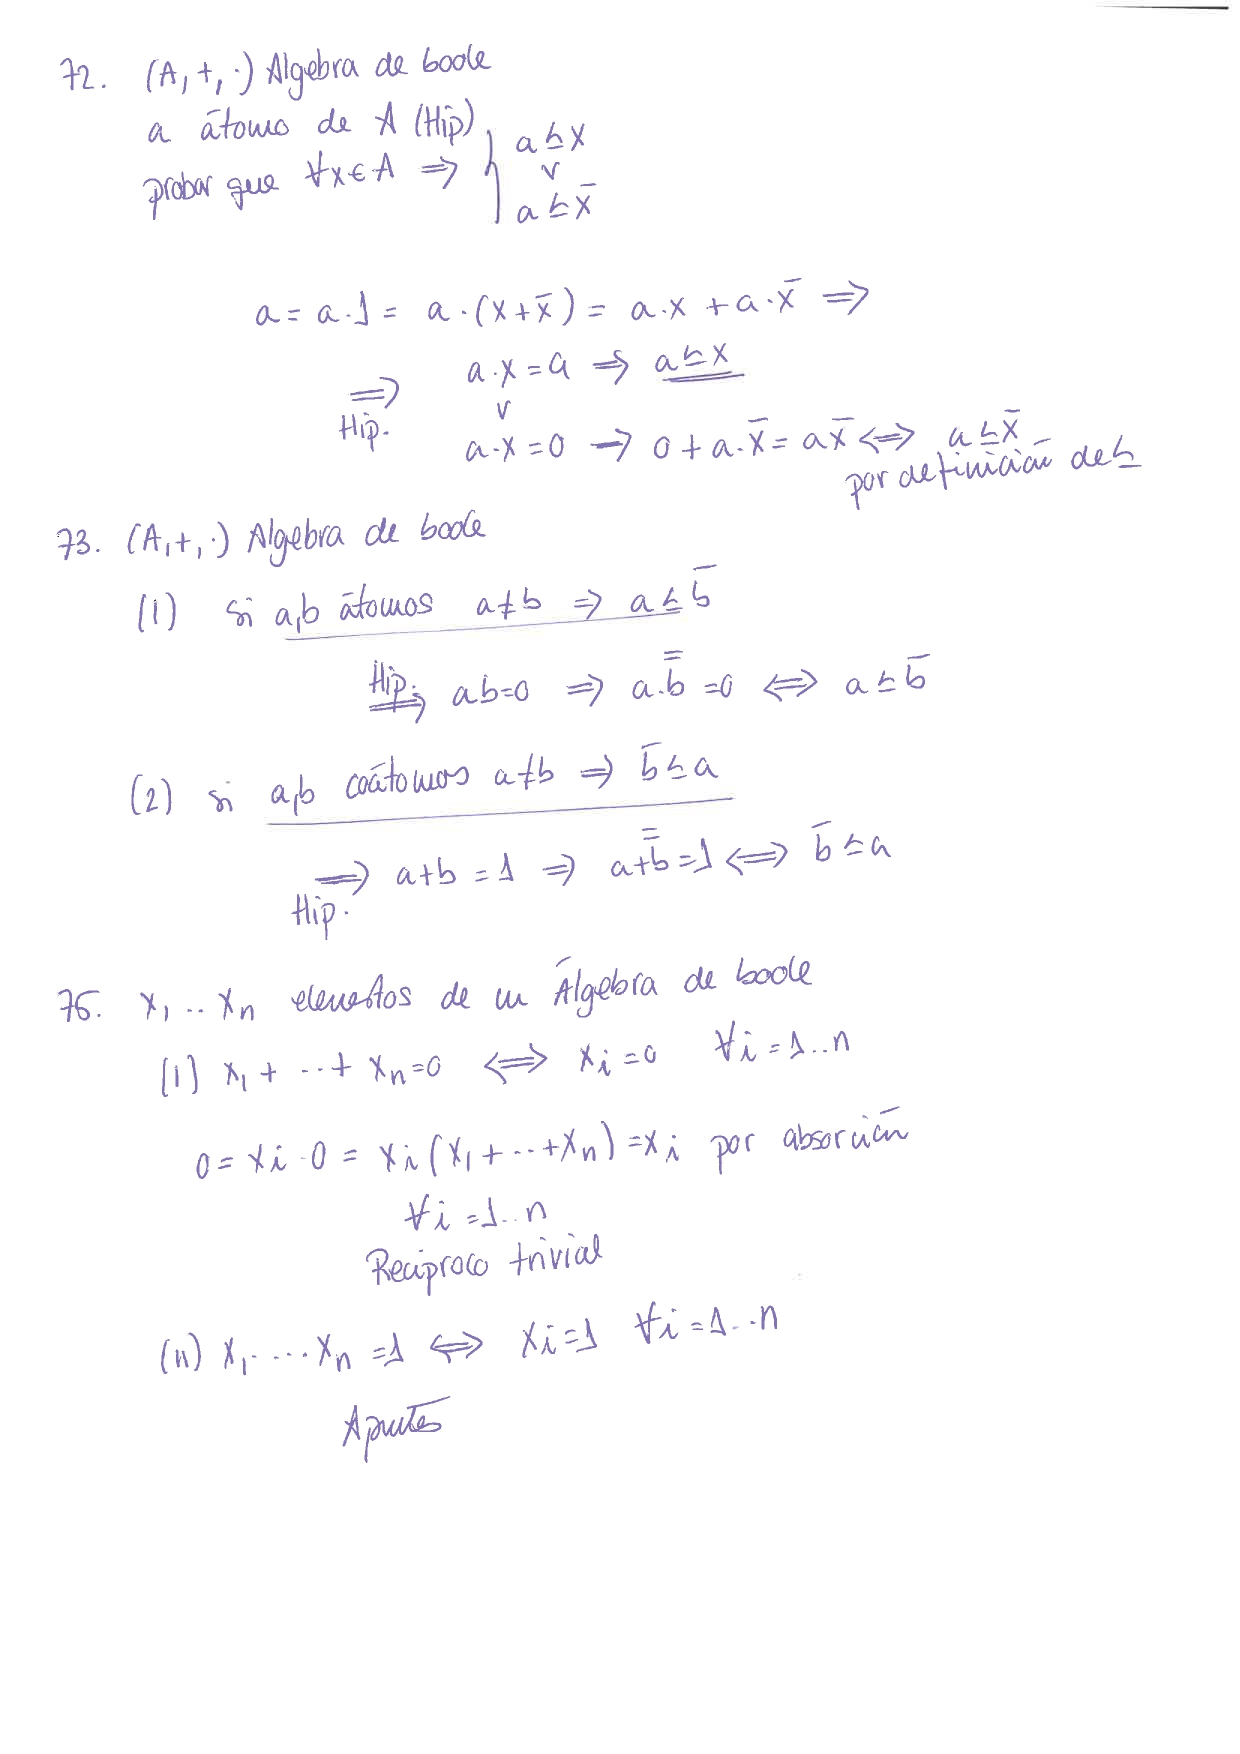 72. (A, +, ·) Álgebra de boole
a átomo de A (Hip)
probar que ∀x ∈ A ⇒ { a ≤ x
∨
a ≤ x̄
a = a·1 = a·(x + x̄) = a·x + a·x̄ ⇒
⇒ Hip. a·x = a ⇒ a ≤ x
∨
a·x = 0 → 0 + a·x̄ = ax̄ ⇔ a ≤ x̄
por definición de ≤
73. (A, +, ·) Álgebra de boole
(1) si a,b átomos a ≠ b ⇒ a ≤ b̄
Hip. ⇒ ab = 0 ⇒ a·b̿ = 0 ⇔ a ≤ b̄
(2) si a,b coátomos a ≠ b ⇒ b̄ ≤ a
⇒ a+b = 1 ⇒ a+b̿ = 1 ⇔ b̄ ≤ a
Hip.
75. x₁ .. xₙ elementos de un Álgebra de boole
(i) x₁ + ··+ xₙ = 0 ⇔ xᵢ = 0 ∀i = 1..n
0 = xᵢ · 0 = xᵢ (x₁ + ··+ xₙ) = xᵢ por absorción
∀i = 1..n
Recíproco trivial
(ii) x₁ · ··· xₙ = 1 ⇔ xᵢ = 1 ∀i = 1...n
Apuntes